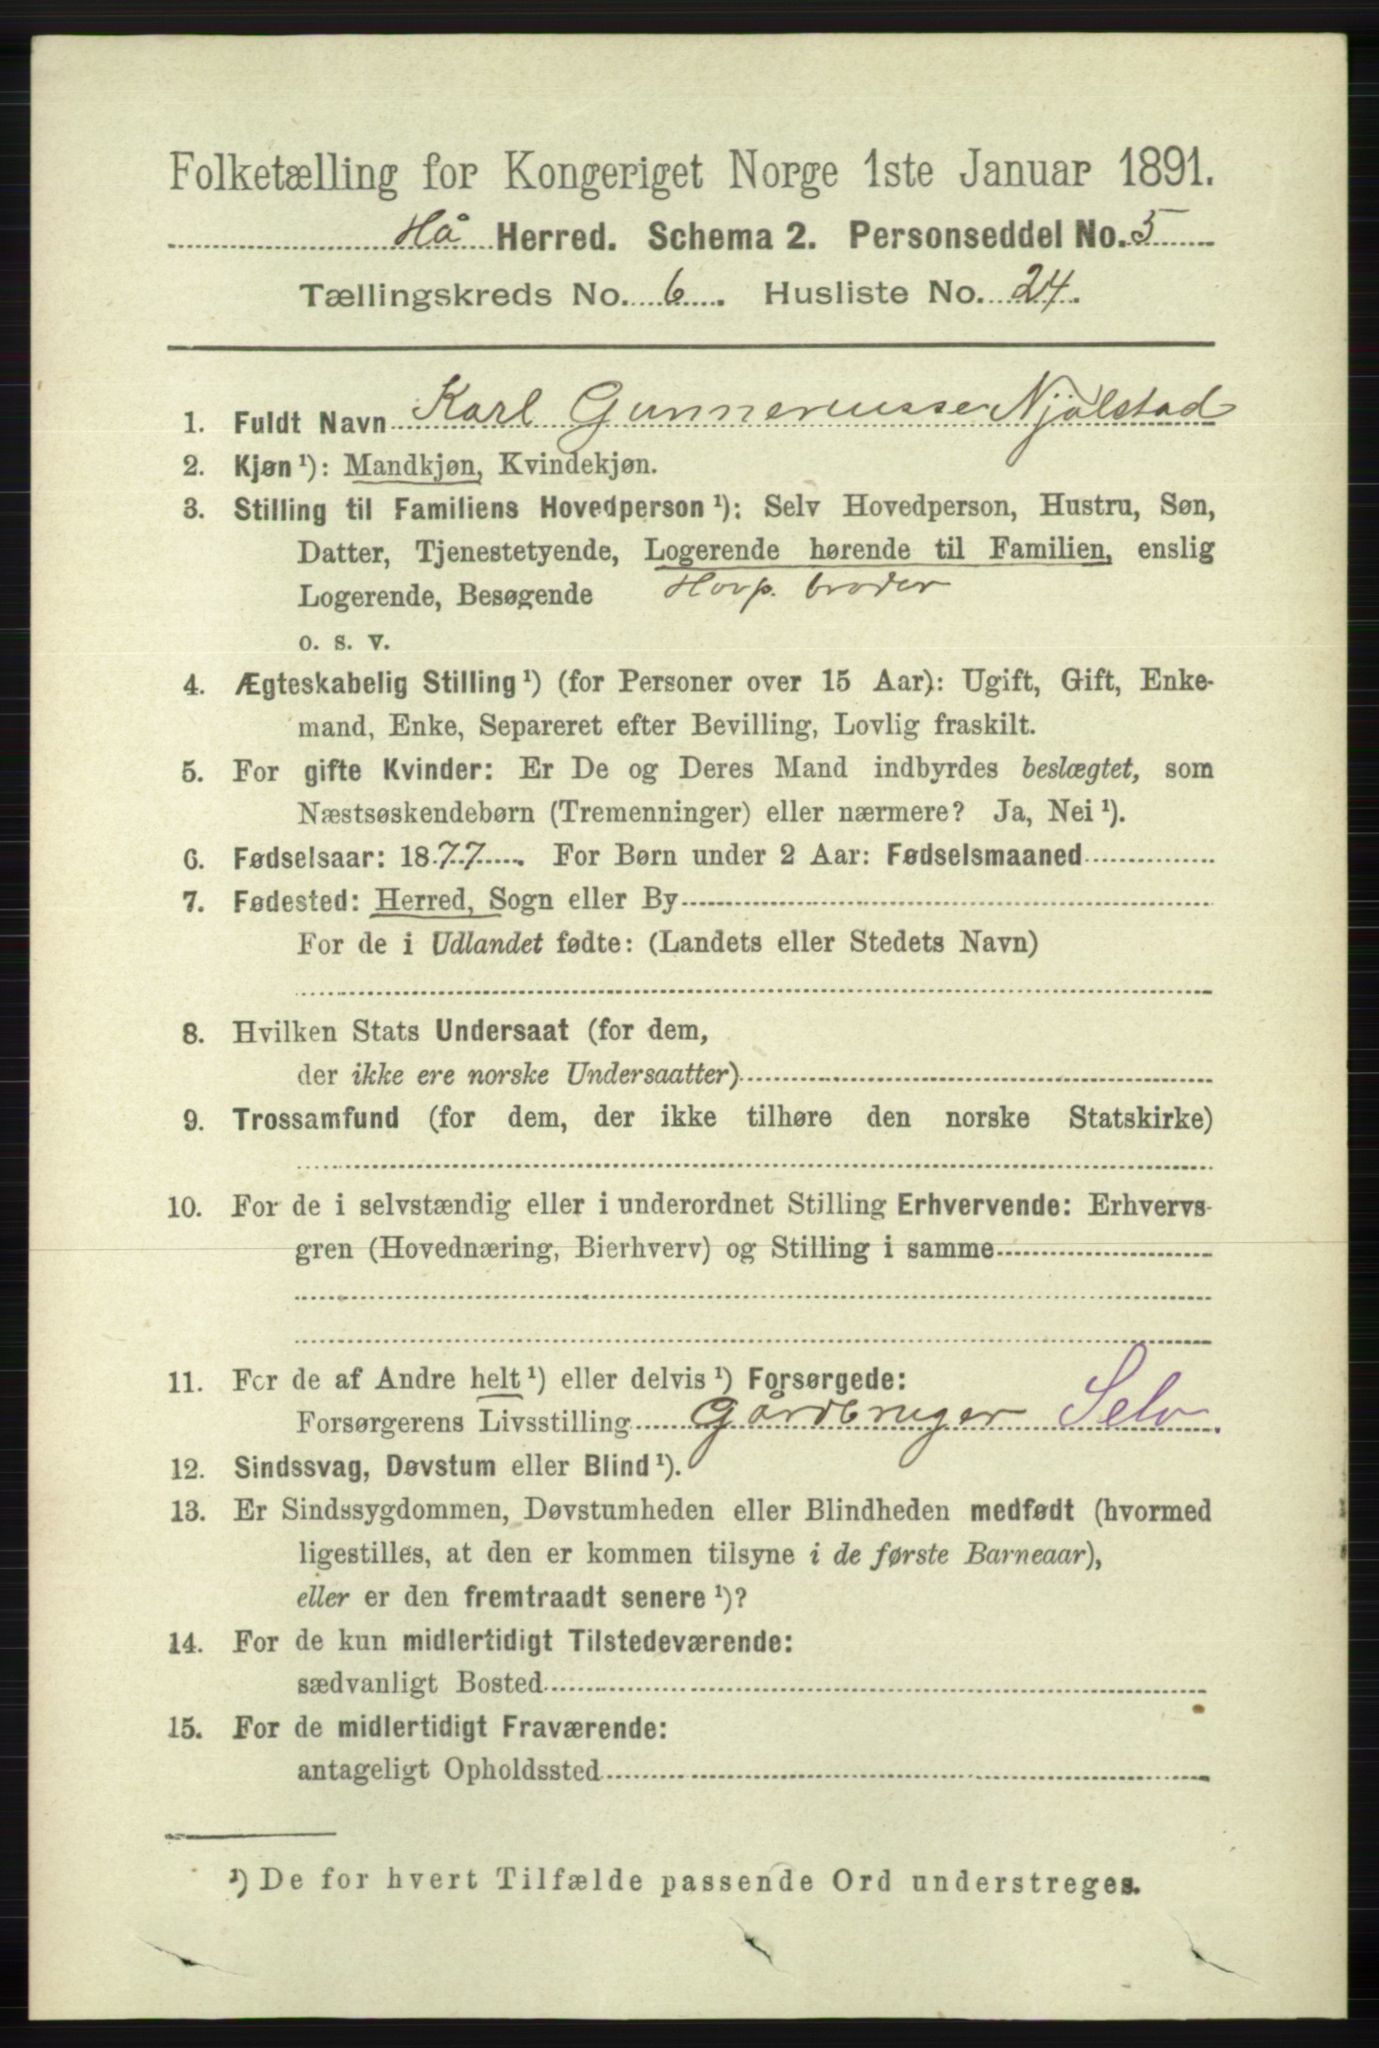 Folketælling for Kongeriget Norge 1ste Januar 1891.
Hå Herred. Schema 2. Personseddel No. 5
Tællingskreds No. 6. Husliste No. 24.
1. Fuldt Navn Karl Gunneriusse Njålstad
2. Kjøn ¹): Mandkjøn, Kvindekjøn.
3. Stilling til Familiens Hovedperson ¹): Selv Hovedperson, Hustru, Søn,
Datter, Tjenestetyende, Logerende hørende til Familien, enslig
Logerende, Besøgende Hovp. broder
o. s. v.
4. Ægteskabelig Stilling ¹) (for Personer over 15 Aar): Ugift, Gift, Enke-
mand, Enke, Separeret efter Bevilling, Lovlig fraskilt.
5. For gifte Kvinder: Er De og Deres Mand indbyrdes beslægtet, som
Næstsøskendebørn (Tremenninger) eller nærmere? Ja, Nei ¹).
6. Fødselsaar: 1877. For Børn under 2 Aar: Fødselsmaaned
7. Fødested: Herred, Sogn eller By
For de i Udlandet fødte: (Landets eller Stedets Navn)
8. Hvilken Stats Undersaat (for dem,
der ikke ere norske Undersaatter)
9. Trossamfund (for dem, der ikke tilhøre den norske Statskirke)
10. For de i selvstændig eller i underordnet Stilling Erhvervende: Erhvervs-
gren (Hovednæring, Bierhverv) og Stilling i samme
11. For de af Andre helt ¹) eller delvis ¹) Forsørgede:
Forsørgerens Livsstilling Gårdbruger Selv.
12. Sindssvag, Døvstum eller Blind ¹).
13. Er Sindssygdommen, Døvstumheden eller Blindheden medfødt (hvormed
ligestilles, at den er kommen tilsyne i de første Barneaar),
eller er den fremtraadt senere ¹)?
14. For de kun midlertidigt Tilstedeværende:
sædvanligt Bosted
15. For de midlertidigt Fraværende:
antageligt Opholdssted
¹) De for hvert Tilfælde passende Ord understreges.